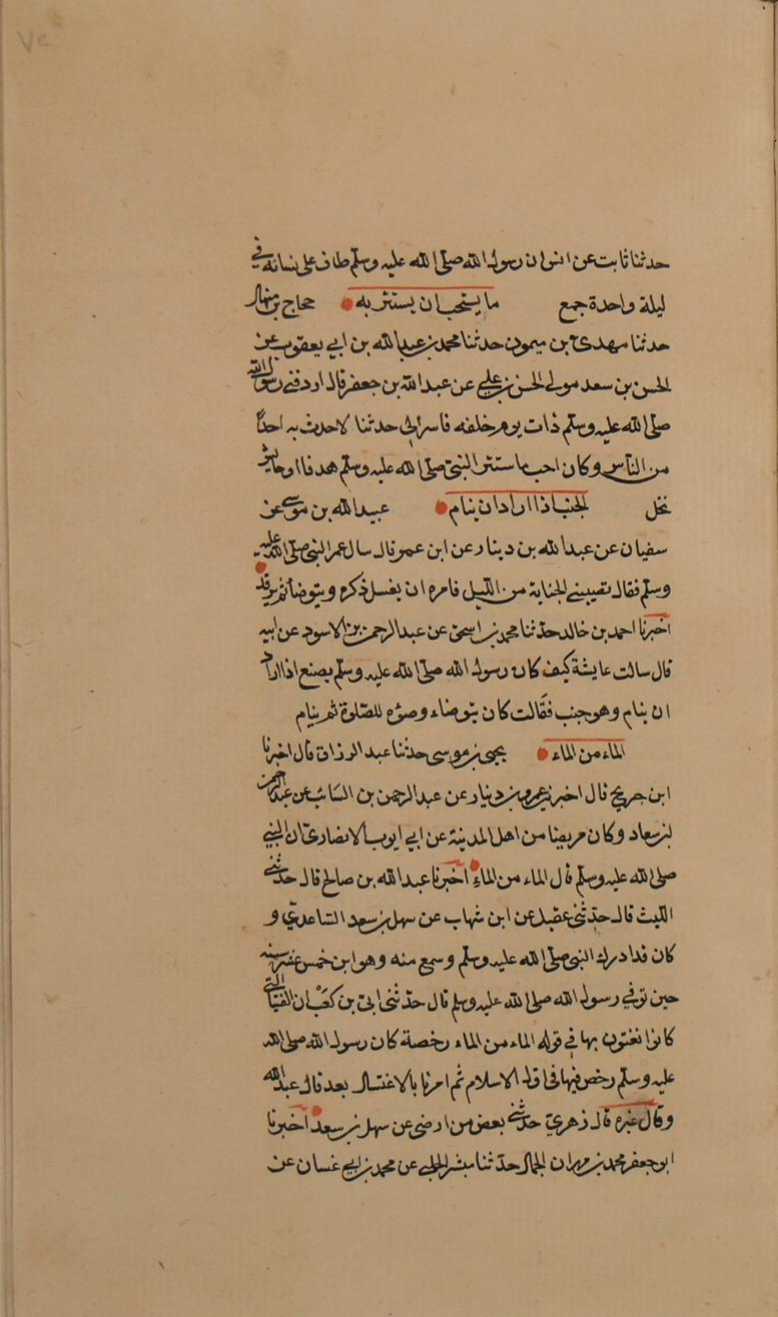 حدثنا ثابت عن انس ان رسول الله صلى الله عليه وسلم طاف على نسائه في
ليلة واحدة جمع ما يستحب ان يستتر به حجاج بن منهال
حدثنا مهدي بن ميمون حدثنا محمد بن عبد الله بن ابي يعقوب عن
الحسن بن سعد مولى الحسن بن علي عن عبد الله بن جعفر قال اردفني رسول الله
صلى الله عليه وسلم ذات يوم خلفه فاسر الي حدثنا لا احدث به احدًا
من الناس وكان احب ما استتر النبي صلى الله عليه وسلم هدفا او حايش
نخل الجنب اذا اراد ان ينام عبيد الله بن موسى عن
سفيان عن عبد الله بن دينار عن ابن عمر قال سال عمر النبي صلى الله عليه
وسلم فقال تصيبني الجنابة من الليل فامره ان يغسل ذكره ويتوضأ ثم يرقد
اخبرنا احمد بن خالد حدثنا محمد بن اسحق عن عبد الرحمن بن الاسود عن ابيه
قال سالت عايشة كيف كان رسول الله صلى الله عليه وسلم يصنع اذا اراد
ان ينام وهو جنب فقالت كان يتوضاء وضوءه للصلوة ثم ينام
الماء من الماء يحيى بن موسى حدثنا عبد الرزاق قال اخبرنا
ابن جريج قال اخبرني عمرو بن دينار عن عبد الرحمن بن السائب عن عبد الرحمن
بن سعاد وكان مرضيا من اهل المدينة عن ابي ايوب الانصاري ان النبي
صلى الله عليه وسلم قال الماء من الماء اخبرنا عبد الله بن صالح قال حدثني
الليث قال حدثني عقيل عن ابن شهاب عن سهل بن سعد الساعدي و
كان قد ادرك النبي صلى الله عليه وسلم وسمع منه وهو ابن خمس عشر سنه
حين توفي رسول الله صلى الله عليه وسلم قال حدثني ابي بن كعب ان الفتيا التي
كانوا يفتون بها في قوله الماء من الماء رخصة كان رسول الله صلى الله
عليه وسلم رخص فيها في اول الاسلام ثم امرنا بالاغتسال بعد قال عبد الله
وقال غيره قال زهري حدثني بعض من ارضى عن سهل بن سعد اخبرنا
ابو جعفر محمد بن مهران الجمال حدثنا مبشر الحلبي عن محمد بن ابي غسان عن